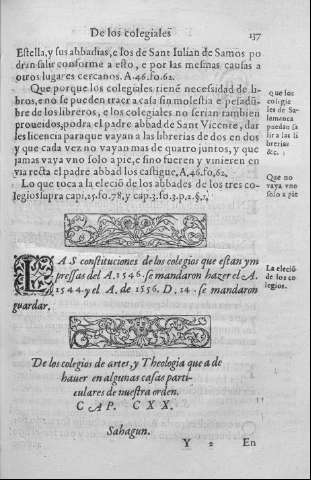 De los colegiales
137
Estella, y sus abbadias, e los de Sant Iulian de Samos po
dran salir conforme a esto, e por las mesmas causas a
otros lugares cercanos. A.46.fo.62.
Que porque los colegiales tienē necessidad de li-
bros, e no se pueden traer a casa sin molestia e pesadū-
bre de los libreros, e los colegiales no serian tambien
proueidos, podra el padre abbad de Sant Vicente, dar
les licencia para que vayan a las librerias de dos en dos
y que cada vez no vayan mas de quatro juntos, y que
jamas vaya vno solo a pie, e si no fueren y vinieren en
via recta el padre abbad los castigue, A.46.fo.62.
Lo que toca a la eleciō de los abbades de los tres co-
legios supra capi.25.fo.78, y cap.3.fo.3.p.2.§.1,
que los
colegia
les de Sa-
lamanca
puedan sa
lir a las li
brerias
&c.
Que no
vaya vno
solo a pie
LAS constituciones de los colegios que estan ym
pressas del A.1546. se mandaron hazer el A.
1544. y el A. de 1556. D. 14. se mandaron
guardar.
La eleciō
de los co
legios.
De los colegios de artes, y Theologia que a de
hauer en algunas casas parti-
culares de nuestra orden.
CAP. CXX.
Sahagun.
Y 2
En